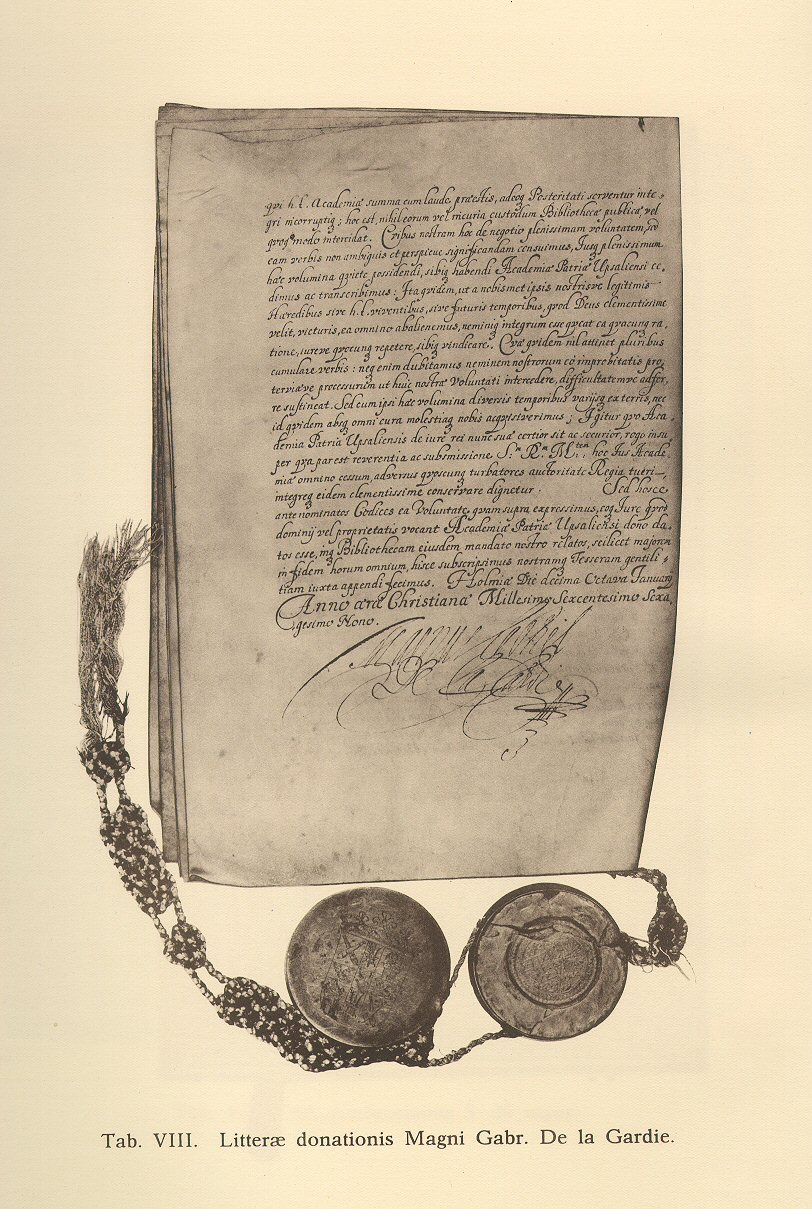 qvi h. t. Academiæ summa cum laude, præestis, adeoq Posteritati serventur inte,
gri incorruptiq; hoc est, nihil eorum vel incuria custodum Bibliothecæ publicæ, vel
qvoqvo modo intercidat. Qvibus nostram hoc de negotio plenissimam voluntatem,
eam verbis non ambiguis et perspicue significandam censuimus, Jusq plenissimum
hæc volumina qviete, possidendi, sibiq habendi Academiæ Patriæ Upsaliensi ce,
dimus ac transcribimus: Ita qvidem, ut a nobismet ipsis nostrisve legitimis
Hæredibus sive h. t. viventibus, sive futuris temporibus, qvod Deus clementissime
velit, victuris, ea omnino abalienemus, neminiq integrum esse qveat ea qvacunq ra,
tione, iureve qvocunq repetere, sibiq vindicare. Qvæ qvidem nil attinet pluribus
cumulare verbis: neq enim dubitamus neminem nostrorum eo improbitatis pro,
terviæve processurum ut huic nostræ Voluntati intercedere, difficultatemve adfer,
re sustineat. Sed cum ipsi hæc volumina diversis temporibus varijsq ex terris, nec
id qvidem absq omni cura molestiaq nobis acqvisiverimus; Igitur qvo Aca,
demia Patria Upsaliensis de iure rei nunc suæ certior sit ac securior, rogo insu,
per qva par est reverentia ac submissione S.ᵐ R.ᵐ M.ᵗᵉᵐ, hoc Jus Acade,
miæ omnino cessum, adversus qvoscunq turbatores auctoritate Regia tueri
integreq eidem clementissime conservare dignetur. Sed hosce
ante nominatos Codices ea Voluntate, qvam supra expressimus, eoq Jure qvod
dominij vel proprietatis vocant Academiæ Patriæ Upsaliensi dono da,
tos esse, inq Bibliothecam eiusdem mandato nostro relatos, scilicet majorem
in fidem horum omnium, hisce subscripsimus nostramq Tesseram gentili,
tiam iuxta appendi fecimus. Holmiæ Die decima Octava Januarij
Anno æræ Christianæ Millesimo Sexcentesimo Sexa,
gesimo Nono.
Magnus Gabriel
De la Gardie
Tab. VIII. Litteræ donationis Magni Gabr. De la Gardie.